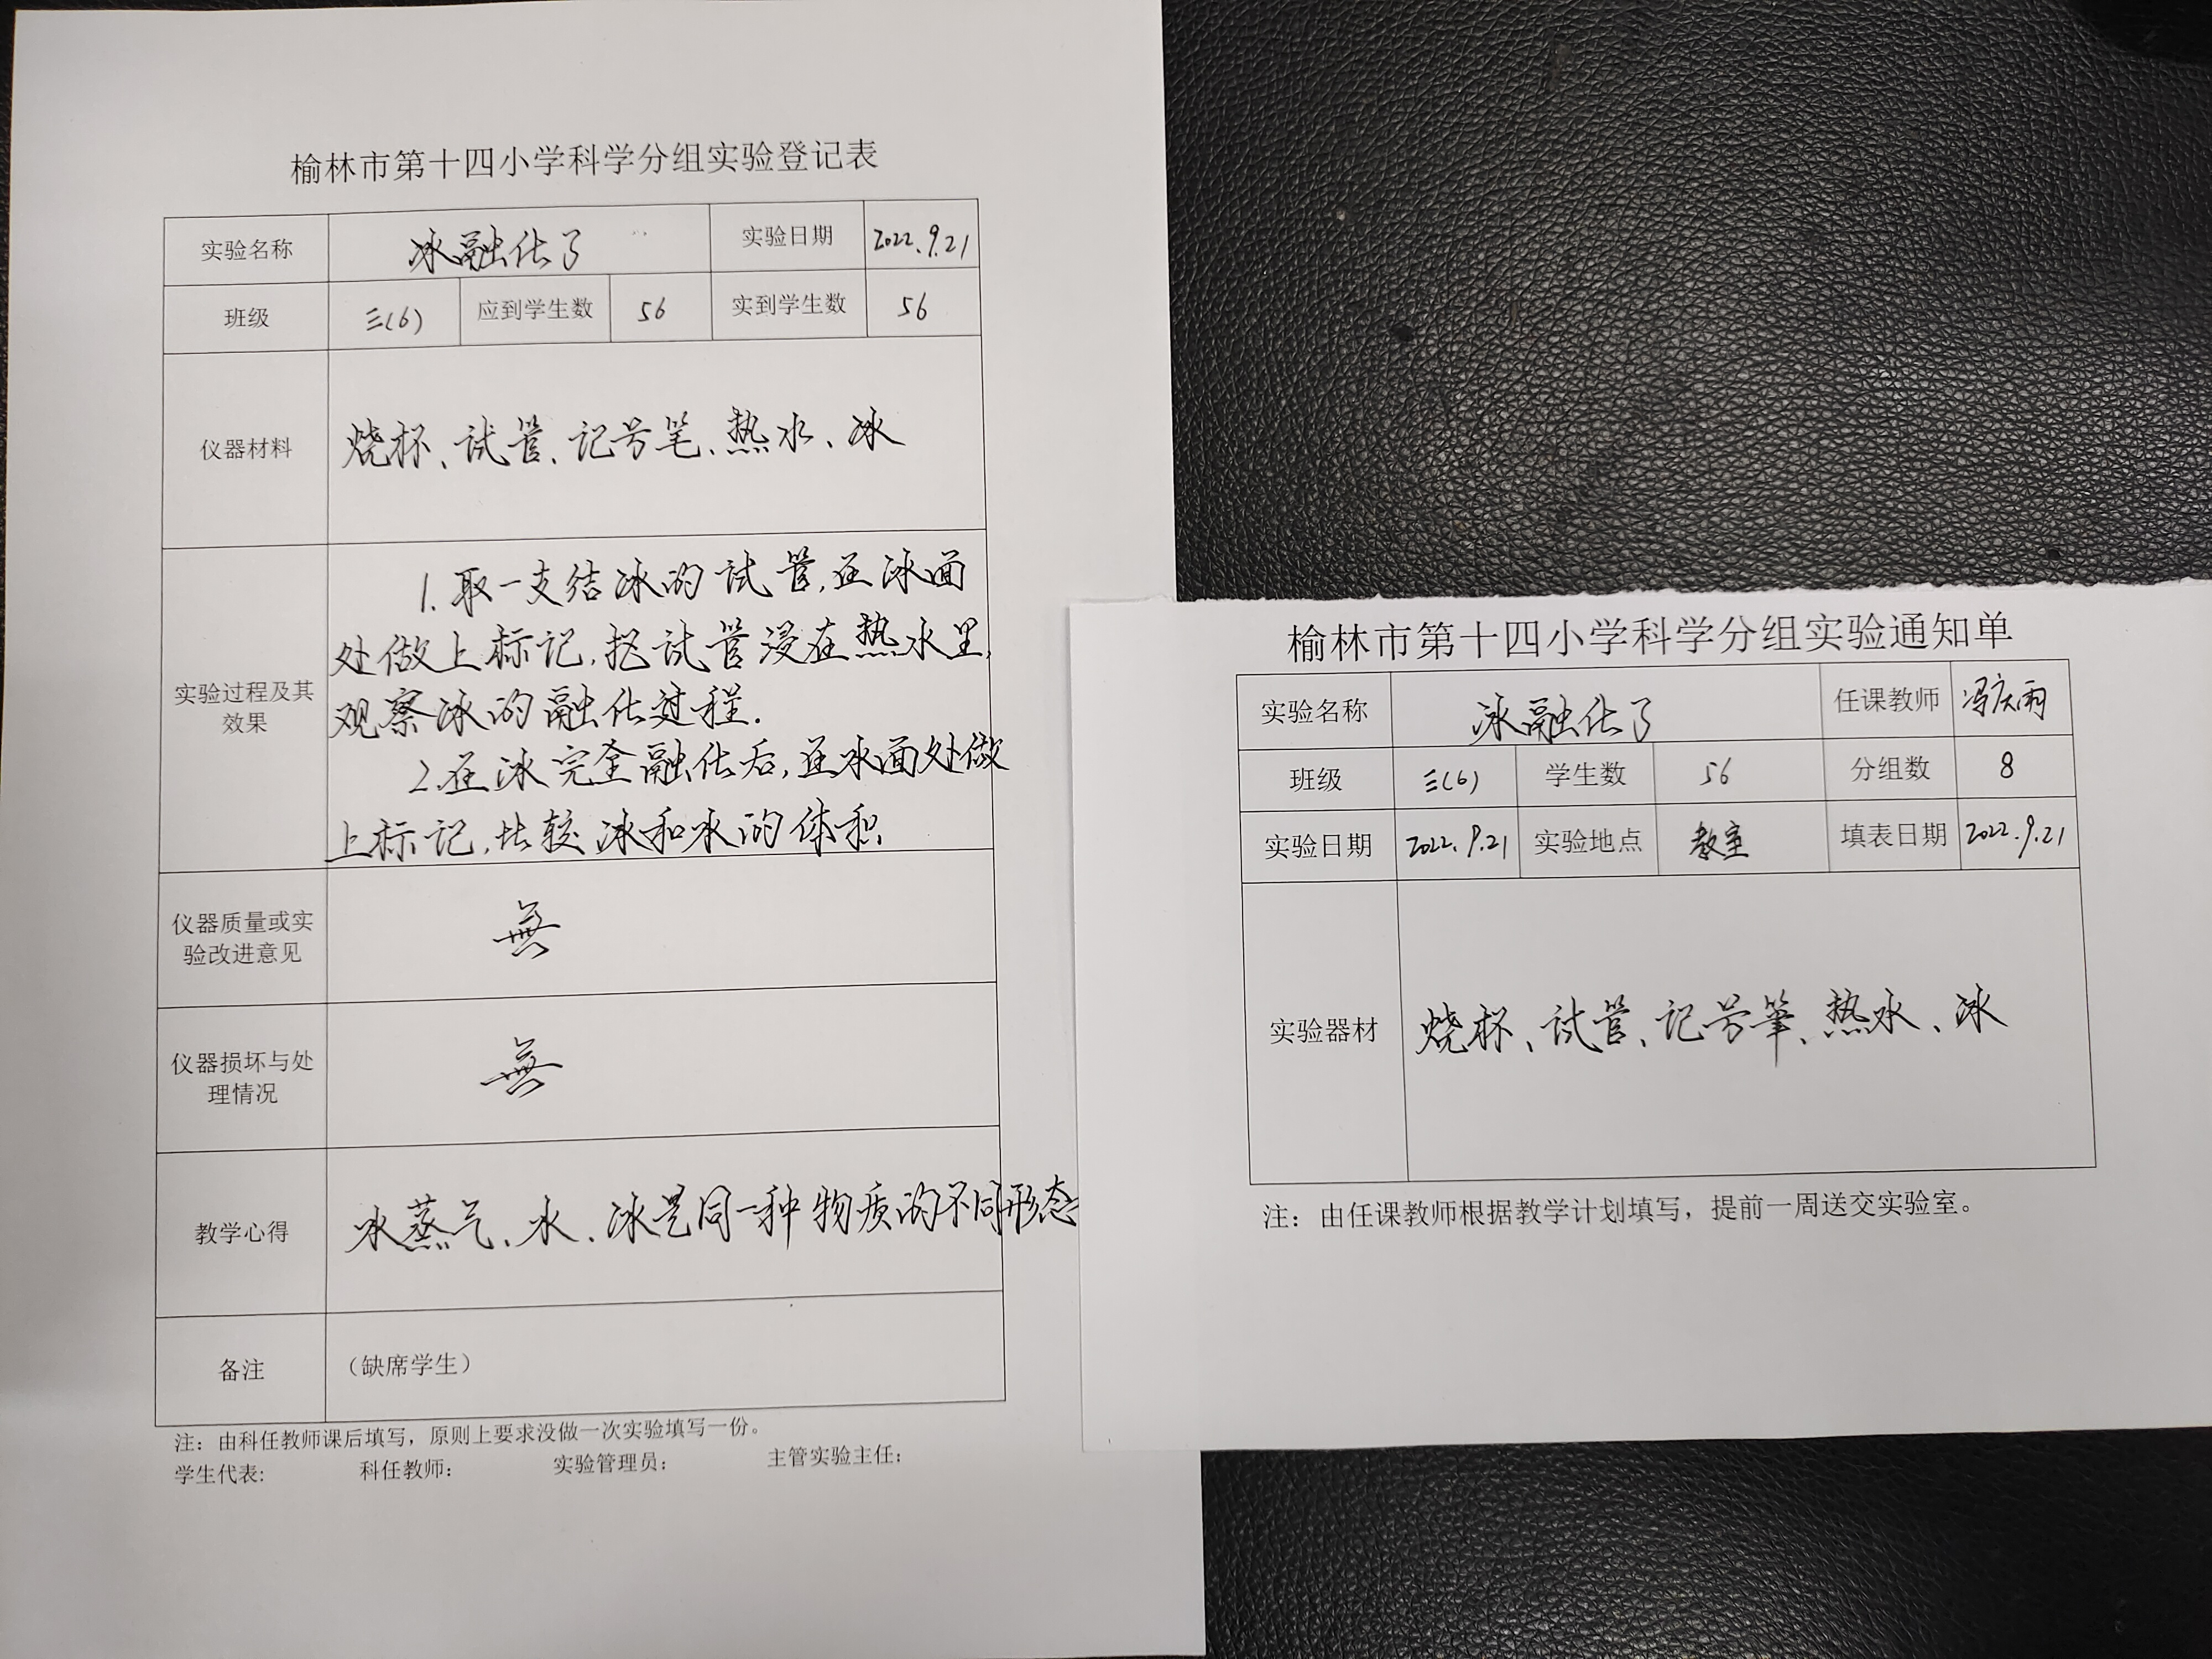 榆林市第十四小学科学分组实验登记表
实验名称 冰融化了 实验日期 2022.9.21
班级 三(6) 应到学生数 56 实到学生数 56
仪器材料 烧杯、试管、记号笔、热水、冰
1.取一支结冰的试管,在冰面
处做上标记,把试管浸在热水里,
实验过程及其
效果
观察冰的融化过程.
2.在冰完全融化后,在水面处做
上标记,比较冰和水的体积.
仪器质量或实
验改进意见
無
仪器损坏与处
理情况
無
教学心得 水蒸气、水、冰是同一种物质的不同形态
备注 （缺席学生）
注：由科任教师课后填写，原则上要求没做一次实验填写一份。
学生代表: 科任教师： 实验管理员： 主管实验主任：
榆林市第十四小学科学分组实验通知单
实验名称 冰融化了 任课教师 冯庆雨
班级 三(6) 学生数 56 分组数 8
实验日期 2022.9.21 实验地点 教室 填表日期 2022.9.21
实验器材 烧杯、试管、记号筆、热水、冰
注：由任课教师根据教学计划填写，提前一周送交实验室。